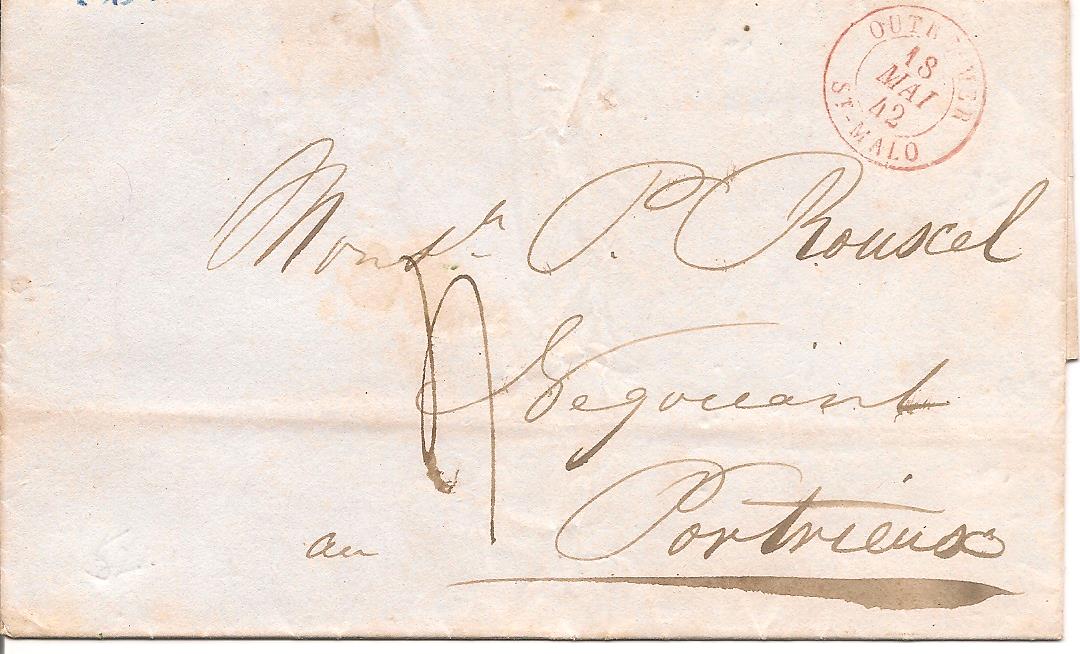 OUTRE-MER
18
MAI
42
ST-MALO
Monsr. P. Rouxel
Négociant
au Portrieux